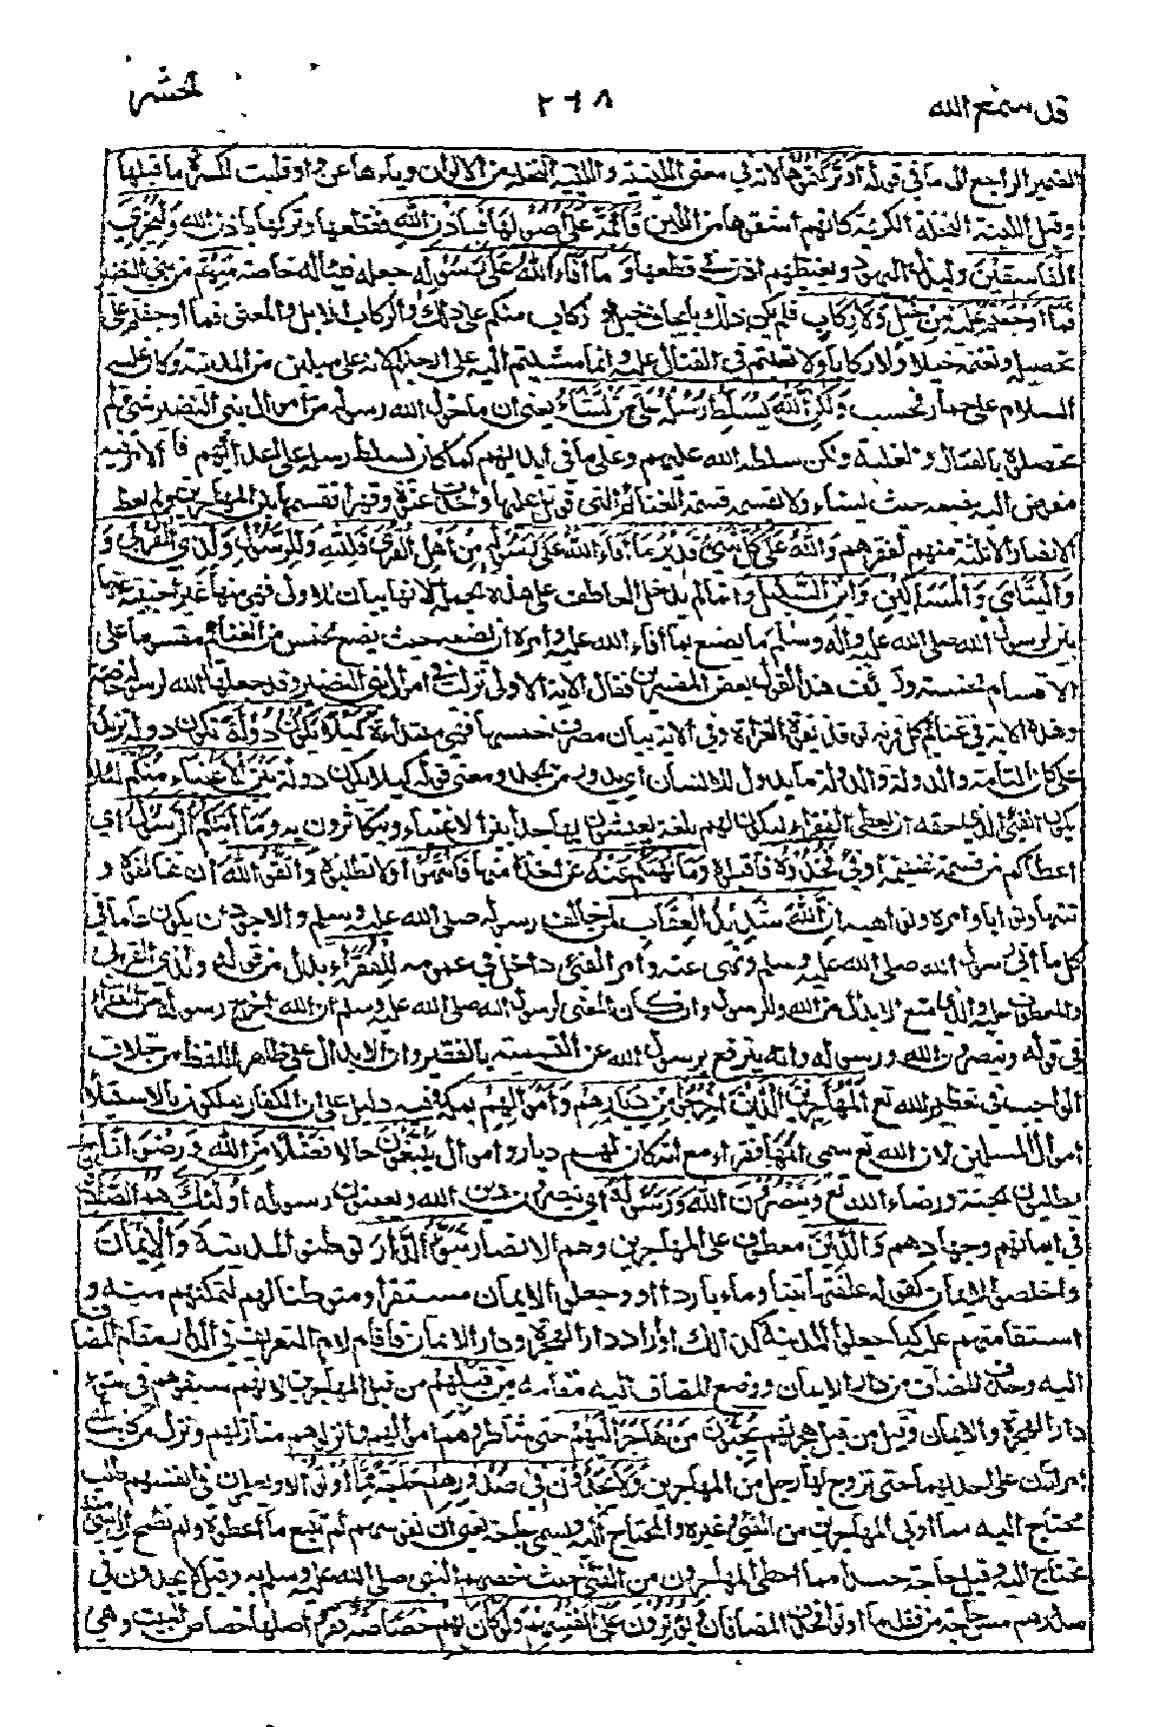 قد سمع الله
٢٦٨
الحشر
الضمير الراجع الى ما في قوله او تركتموها لانه في معنى اللينة واللينة النخلة من الالوان وياءها عن واو قلبت لكسرة ما قبلها
وقيل اللينة النخلة الكريمة كانهم اشتقوها من اللين قَائِمَةً عَلَى أُصُولِهَا فَبِإِذْنِ اللَّهِ فقطعها وتركها باذن الله وَلِيُخْزِيَ
الْفَاسِقِينَ وليذل اليهود ويغيظهم اذن في قطعها وَمَا أَفَاءَ اللَّهُ عَلَى رَسُولِهِ جعله فيئا له خاصة مِنْهُمْ من بني النضير
فَمَا أَوْجَفْتُمْ عَلَيْهِ مِنْ خَيْلٍ وَلَا رِكَابٍ فلم يكن ذلك بايجاف خيل او ركاب منكم على ذلك والركاب الابل والمعنى فما اوجفتم على
تحصيله وتغنمه خيلا ولا ركابا ولا تعبتم في القتال عليه وانما مشيتم اليه على ارجلكم لانه على ميلين من المدينة وكان عليه
السلام على حمار فحسب وَلَكِنَّ اللَّهَ يُسَلِّطُ رُسُلَهُ عَلَى مَنْ يَشَاءُ يعني ان ما خول الله رسوله من اموال بني النضير شئ لم
تحصلوه بالقتال والغلبة ولكن سلطه الله عليهم وعلى ما في ايديهم كما كان يسلط رسله على اعدائهم فالامر فيه
مفوض اليه يضعه حيث يشاء ولا يقسمه قسمة الغنائم التي قوتل عليها واخذت عنوة وقهرا فقسمها بين المهاجرين ولم يعط
الانصار الا ثلثة منهم لفقرهم وَاللَّهُ عَلَى كُلِّ شَيْءٍ قَدِيرٌ مَا أَفَاءَ اللَّهُ عَلَى رَسُولِهِ مِنْ أَهْلِ الْقُرَى فَلِلَّهِ وَلِلرَّسُولِ وَلِذِي الْقُرْبَى وَ
وَالْيَتَامَى وَالْمَسَاكِينِ وَابْنِ السَّبِيلِ وانما لم يدخل العاطف على هذه الجملة لانها بيان للاولى فهي منها غير اجنبية عنها
بين لرسول الله صلى الله عليه واله وسلم ما يصنع بما افاء الله عليه وامره ان يضعه حيث يضع الخمس من الغنائم مقسوما على
الاقسام الخمسة وزيف هذا القول بعض المفسرين فقال الاية الاولى نزلت في اموال بني النضير وقد جعلها الله لرسوله خاصة
وهذه الاية في غنائم كل قرية تؤخذ بقوة الغزاة وفي الاية بيان مصرف خمسها فهي مبتداءة كَيْلَا يَكُونَ دُولَةً تكون دولة يزيد
على كان التامة والدولة والدولة ما يدول للانسان اي يدور من الجد ومعنى قوله كيلا يكون دولة بَيْنَ الْأَغْنِيَاءِ مِنْكُمْ لئلا
يكون الفئ الذي حقه ان يعطى الفقراء ليكون لهم بلغة يعيشون بها جدا بين الاغنياء ويتكاثرون به وَمَا آتَاكُمُ الرَّسُولُ اي
اعطاكم من قسمة غنيمة او فئ فَخُذُوهُ فاقبلوه وَمَا نَهَاكُمْ عَنْهُ عن اخذه منها فَانْتَهُوا ولا تطلبوه وَاتَّقُوا اللَّهَ ان تخالفوه و
تتهاونوا باوامره ونواهيه إِنَّ اللَّهَ شَدِيدُ الْعِقَابِ لمن خالف رسوله صلى الله عليه وسلم والاجود ان يكون عاما في
كل ما اتى رسول الله صلى الله عليه وسلم ونهى عنه وامر الفئ داخل في عمومه لِلْفُقَرَاءِ بدل من قوله ولذي القربى
والمعطوف عليه والذي منع الابدال من الله وللرسول وان كان المعنى لرسول الله صلى الله عليه وسلم ان الله اخرج رسوله من الفقراء
في قوله وينصرون الله ورسوله وانه يترفع برسول الله عن التسمية بالفقير وان الابدال على ظاهر اللفظ من خلاف
الواجب في تعظيم الله تع الْمُهَاجِرِينَ الَّذِينَ أُخْرِجُوا مِنْ دِيَارِهِمْ وَأَمْوَالِهِمْ بمكة وفيه دليل على ان الكفار يملكون بالاستيلاء
اموال المسلمين لان الله تع سمى المهاجرين فقراء مع انه كان لهم ديار واموال يَبْتَغُونَ حال فَضْلًا مِنَ اللَّهِ وَرِضْوَانًا اي
يطلبون الجنة ورضاء الله تع وَيَنْصُرُونَ اللَّهَ وَرَسُولَهُ اي ينصرون دين الله ويعينون رسوله أُولَئِكَ هُمُ الصَّادِقُونَ
في ايمانهم وجهادهم وَالَّذِينَ معطوف على المهاجرين وهم الانصار تَبَوَّءُوا الدَّارَ توطنوا المدينة وَالْإِيمَانَ
واخلصوا الايمان كقوله علفتها تبنا وماء باردا او وجعلوا الايمان مستقرا ومتوطنا لهم لتمكنهم منه و
استقامتهم عليه كما جعلوا المدينة كذلك او اراد دار الهجرة ودار الايمان فاقام لام التعريف في الدار مقام المضاف
اليه وحذف المضاف من دار الايمان ووضع المضاف اليه مقامه مِنْ قَبْلِهِمْ من قبل المهاجرين لانهم سبقوهم في تبوء
دار الهجرة والايمان وقيل من قبل هجرتهم يُحِبُّونَ مَنْ هَاجَرَ إِلَيْهِمْ حتى شاطروهم اموالهم وانزلوهم منازلهم ونزل من كانت له
امراتان عن احديهما حتى تزوج بها رجل من المهاجرين وَلَا يَجِدُونَ فِي صُدُورِهِمْ حَاجَةً مِمَّا أُوتُوا ولا يعلمون في انفسهم طلب
محتاج اليه مما اوتى المهاجرون من الفئ وغيره والمحتاج اليه يسمى حاجة يعني ان نفوسهم لم تتبع ما اعطوا ولم تطمح الى شئ منه
تحتاج اليه وقيل حاجة حسدا مما اعطى المهاجرون من الفئ حيث خصهم النبي صلى الله عليه وسلم به وقيل لا يجدون في
صدورهم مس حاجة من فقد ما اوتوا فحذف المضافان وَيُؤْثِرُونَ عَلَى أَنْفُسِهِمْ وَلَوْ كَانَ بِهِمْ خَصَاصَةٌ فقر اصلها خصاص البيت وهي